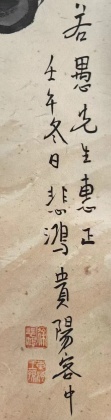 若愚先生惠正
壬午冬日悲鴻貴陽客中